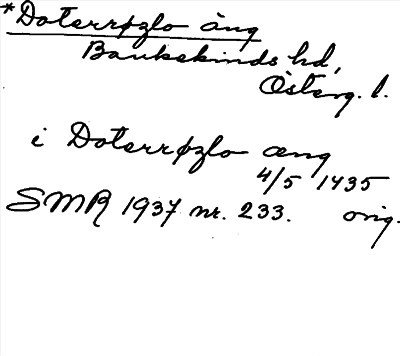 *Doterrøzlo äng
Bankekinds hd,
Österg. l.
i Doterrøzlo æng
4/5 1435
SMR 1937 nr. 233. orig.